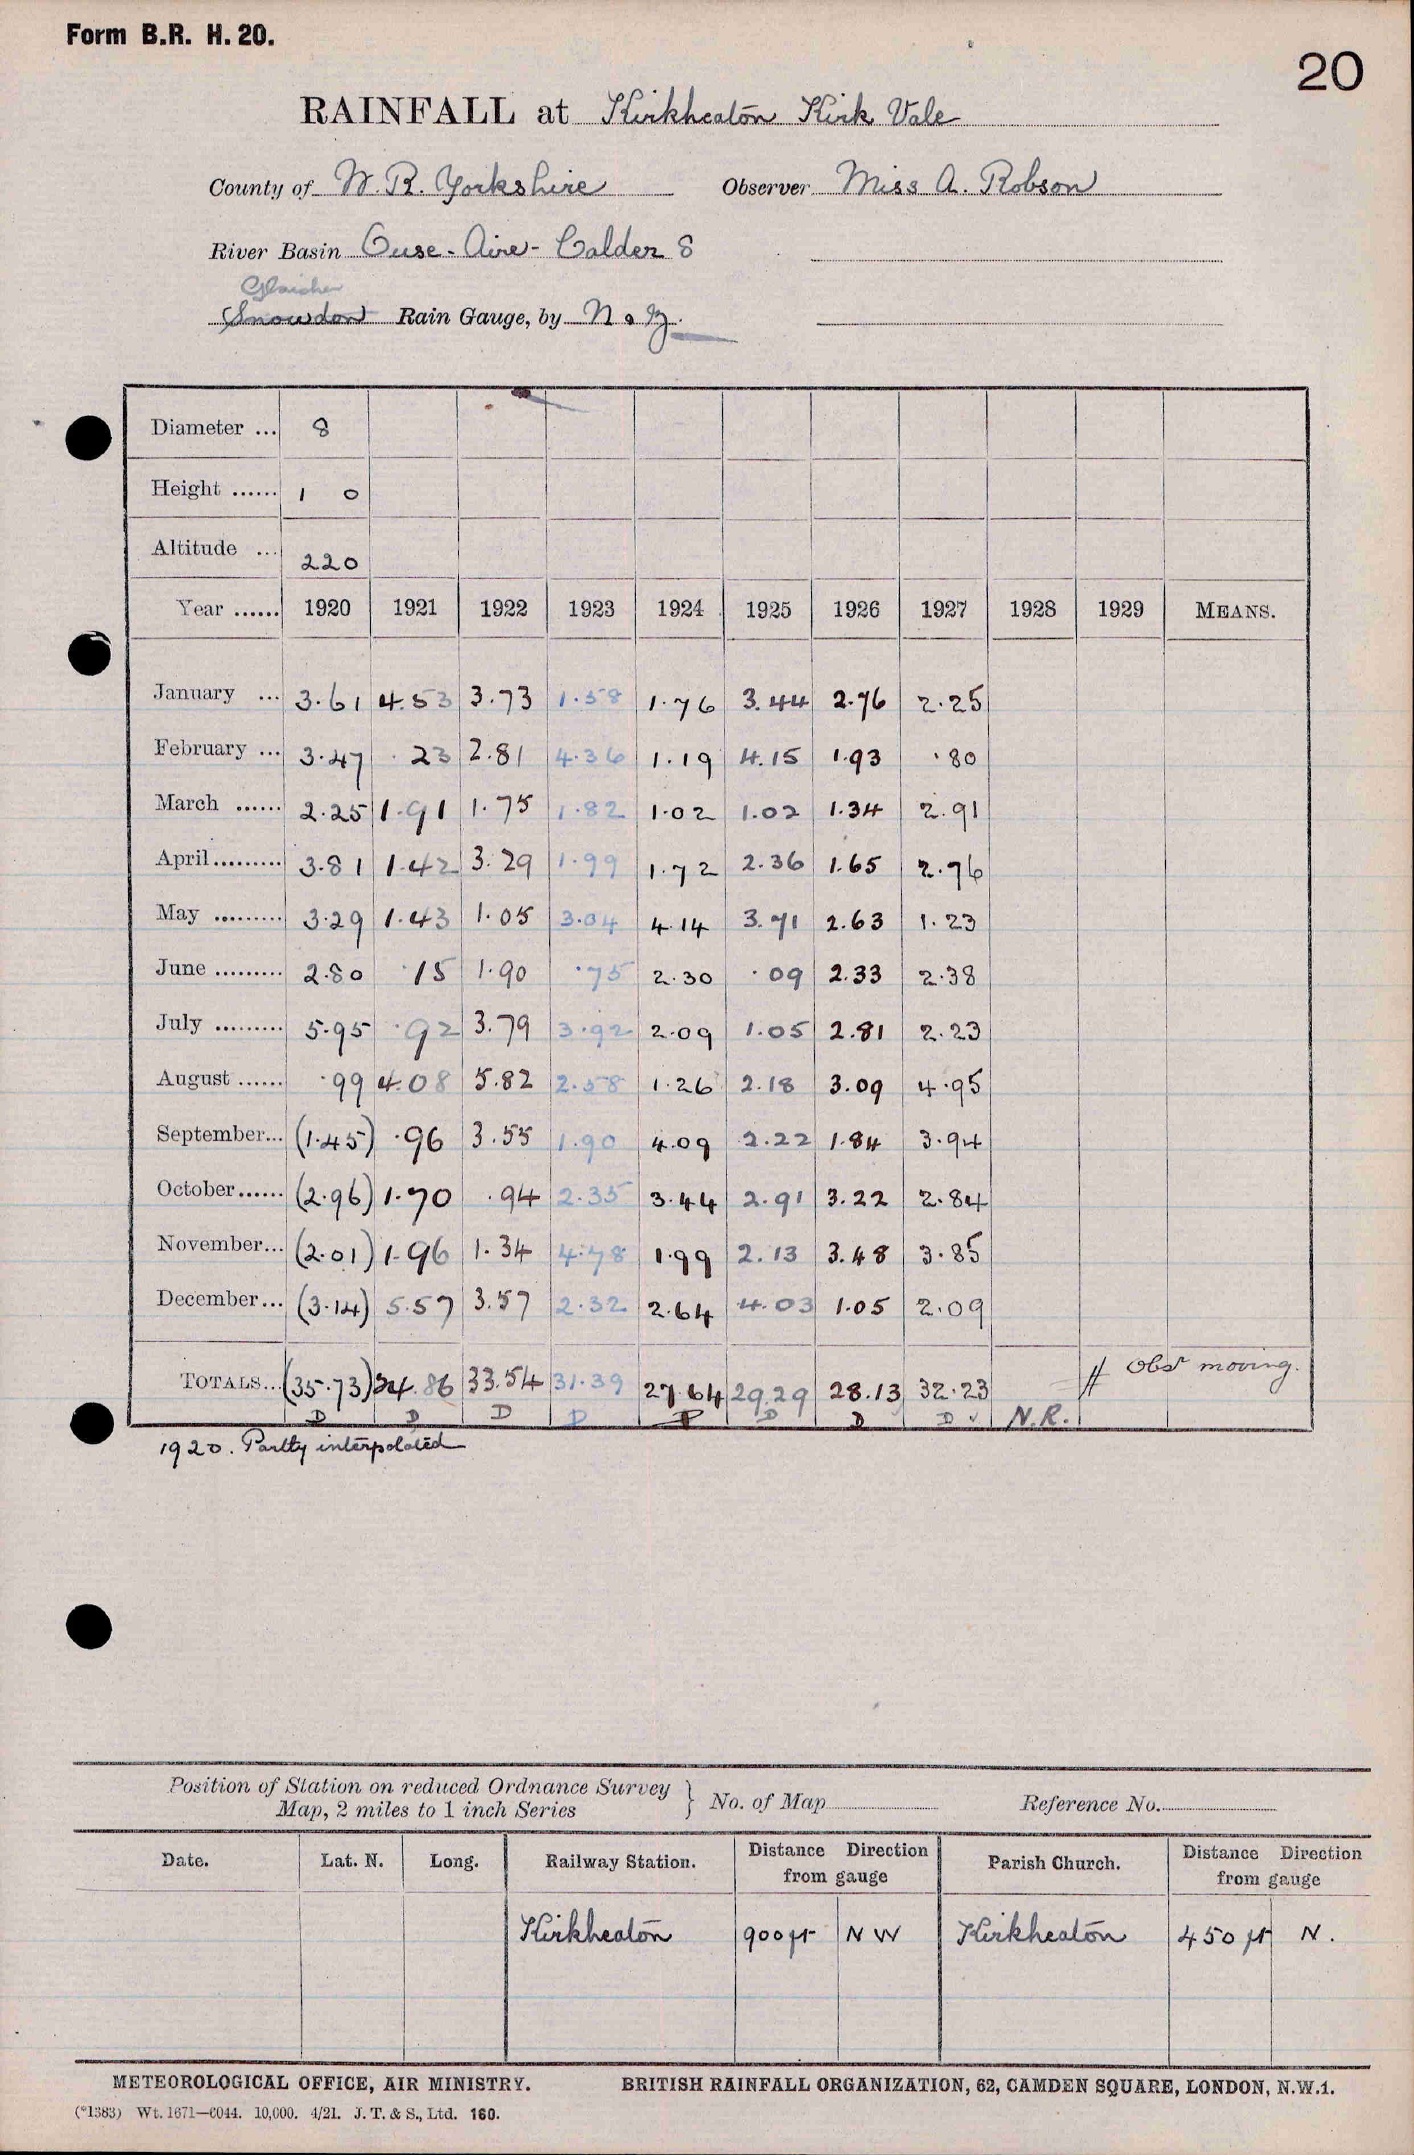 Form B.R. H. 20.
20
RAINFALL at Kirkheaton Kirk Vale
County of W. R. Yorkshire Observer Miss A. Robson
River Basin Ouse - Aire - Calder 8
Glaisher
Snowdon Rain Gauge, by N & Z.
Diameter ... 8
Height ...... 1 0
Altitude ... 220
Year ...... 1920 1921 1922 1923 1924 1925 1926 1927 1928 1929 MEANS.
January ... 3.61 4.53 3.73 1.58 1.76 3.44 2.76 2.25
February ... 3.47 .23 2.81 4.36 1.19 4.15 1.93 .80
March ...... 2.25 1.91 1.75 1.82 1.02 1.02 1.34 2.91
April......... 3.81 1.42 3.29 1.99 1.72 2.36 1.65 2.76
May ......... 3.29 1.43 1.05 3.04 4.14 3.71 2.63 1.23
June ......... 2.80 .15 1.90 .75 2.30 .09 2.33 2.38
July ......... 5.95 .92 3.79 3.92 2.09 1.05 2.81 2.23
August ...... .99 4.08 5.82 2.58 1.26 2.18 3.09 4.95
September... (1.45) .96 3.55 1.90 4.09 2.22 1.84 3.94
October...... (2.96) 1.70 .94 2.35 3.44 2.91 3.22 2.84
November... (2.01) 1.96 1.34 4.78 1.99 2.13 3.48 3.85
December... (3.14) 5.57 3.57 2.32 2.64 4.03 1.05 2.09
TOTALS... (35.73) 24.86 33.54 31.39 27.64 29.29 28.13 32.23 # Obsr moving.
D D D D D D D D ✓ N.R.
1920. Partly interpolated
Position of Station on reduced Ordnance Survey
Map, 2 miles to 1 inch Series } No. of Map Reference No.
Date. Lat. N. Long. Railway Station. Distance Direction from gauge Parish Church. Distance Direction from gauge
Kirkheaton 900 ft NW Kirkheaton 450 ft N.
METEOROLOGICAL OFFICE, AIR MINISTRY. BRITISH RAINFALL ORGANIZATION, 62, CAMDEN SQUARE, LONDON, N.W.1.
(*1383) Wt. 1671—6044. 10,000. 4/21. J. T. & S., Ltd. 160.